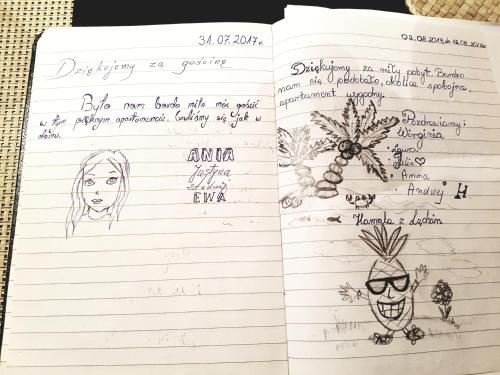 31.07.2017r.
Dziękujemy za gościnę
Było nam bardzo miło móc gościć
w tym pięknym apartamencie. Czuliśmy się jak w
domu.
ANIA
Justyna
EWA
02.08.2017 do 12.08.2017r.
Dziękujemy za miły pobyt. Bardzo
nam się podobało, okolica spokojna,
apartament wygodny.
Pozdrawiamy:
Wirginia
Laura
Alicja
Anna
Andrzej H.
z Lędzin